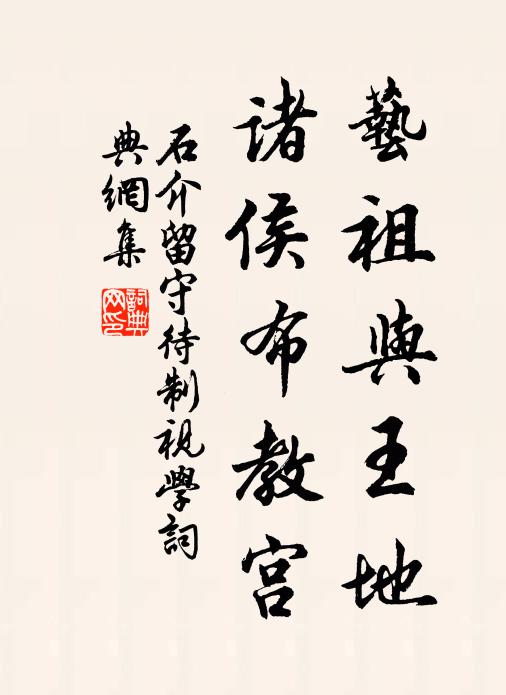 藝祖興王地
諸侯布教宮
石介留守待制視學詞
典網集
詞典
网印